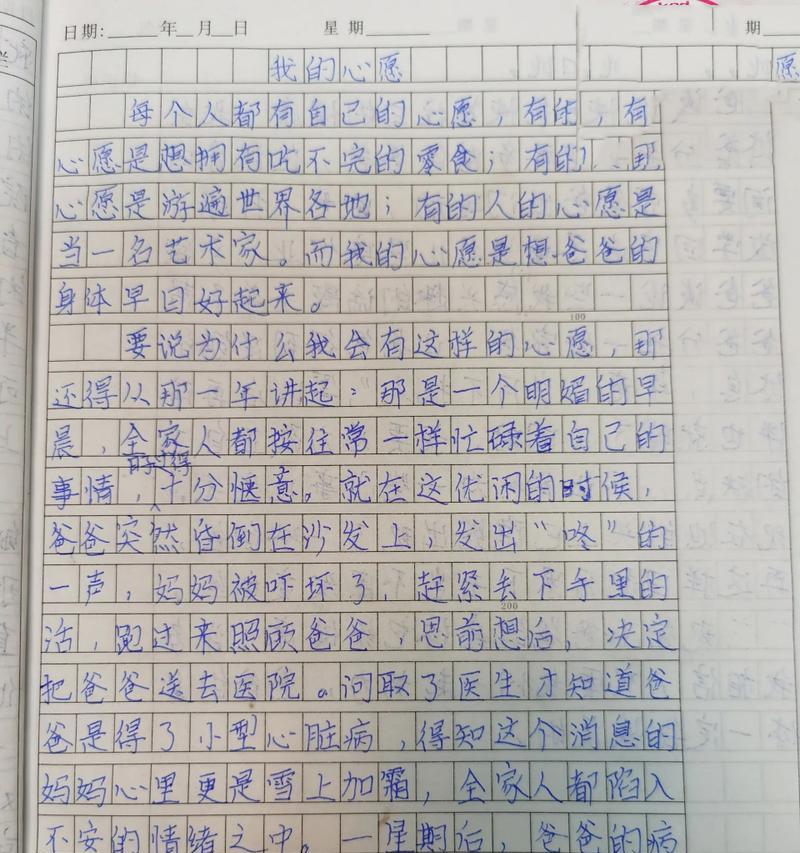 日期：　年　月　日　星 期　期
我的心愿　愿
每个人都有自己的心愿，有的，有
心愿是想拥有吃不完的零食；有的
心愿是游遍世界各地；有的人的心愿是
当一名艺术家。而我的心愿是想爸爸的
身体早日好起来。
100
要说为什么我会有这样的心愿，那
还得从那一年讲起：那是一个明媚的早
晨，全家人都按往常一样忙碌着自己的
日子过得
事情，十分惬意。就在这优闲的时候，
爸爸突然昏倒在沙发上，发出“咚”的
一声，妈妈被吓坏了，赶紧去下手里的
200
活，跑过来照顾爸爸，思前想后，决定
把爸爸送去医院。问取了医生才知道爸
爸是得了小型心脏病，得知这个消息的
妈妈心里更是雪上加霜，全家人都陷入
不安的情绪之中。一星期后，爸爸的病